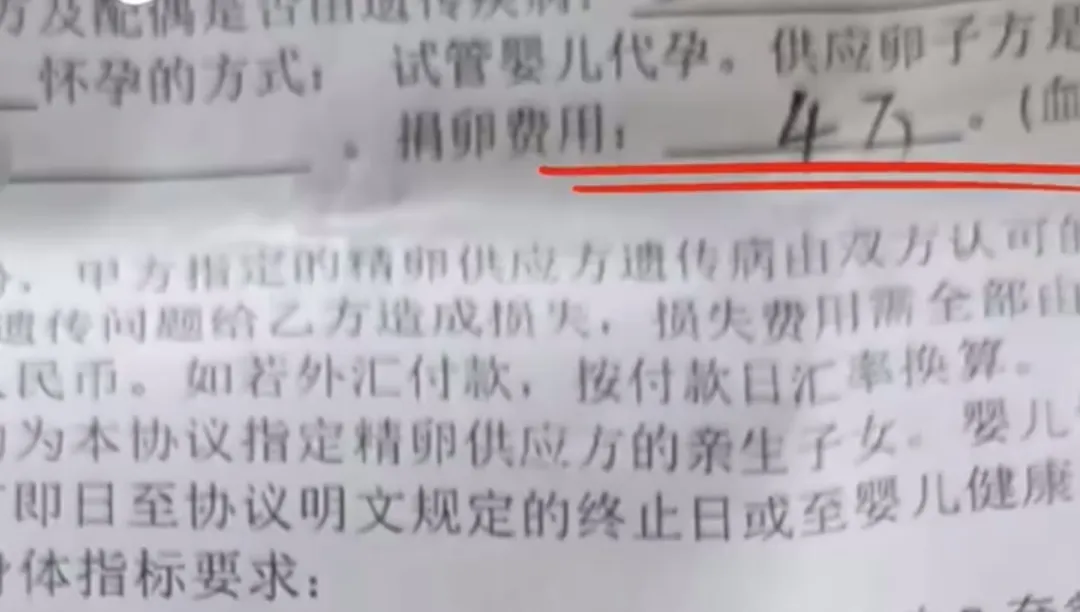 方及配偶是否由遗传疾病:
怀孕的方式: 试管婴儿代孕。供应卵子方是
。捐卵费用: 4万。(血
,甲方指定的精卵供应方遗传病由双方认可的
遗传问题给乙方造成损失,损失费用需全部由
人民币。如若外汇付款,按付款日汇率换算。
为本协议指定精卵供应方的亲生子女。婴儿
即日至协议明文规定的终止日或至婴儿健康
身体指标要求: